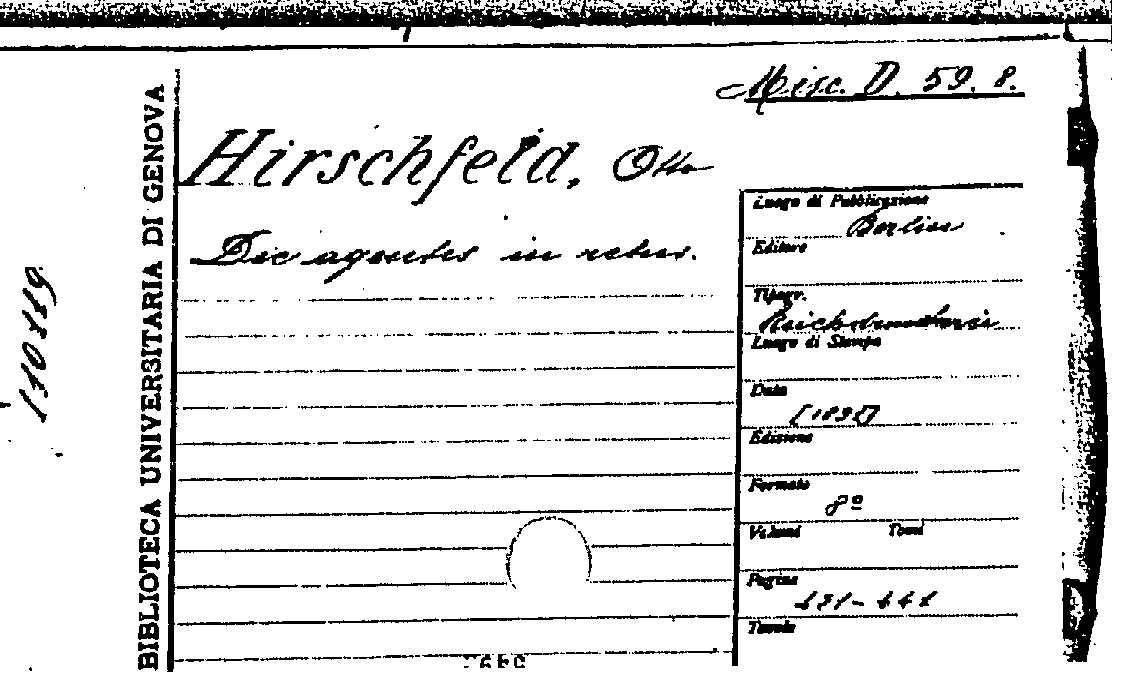 Misc. D. 59. 8.
Hirschfeld, Otto
Die agentes in rebus.
BIBLIOTECA UNIVERSITARIA DI GENOVA
Luogo di Pubblicazione
Berlin
Editore
Tipogr.
Reichsdruckerei
Luogo di Stampa
Data
Edizione
Formato
8º
Volumi Tomi
Pagine
Tavole